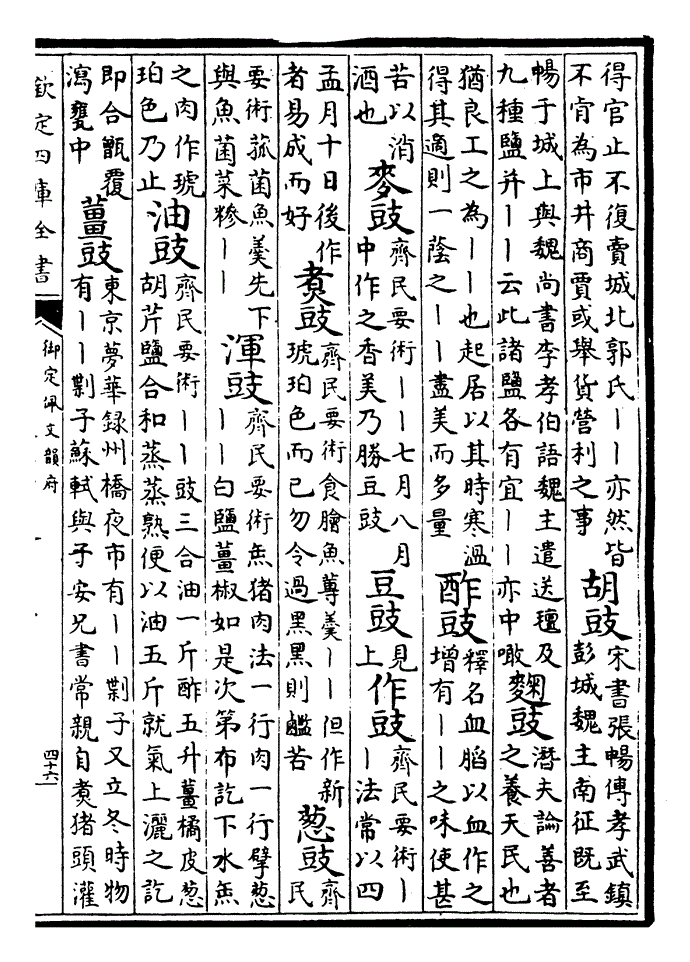 得官止不復賣城北郭氏丨丨亦然皆
不肯為市井商賈或舉貨營利之事
胡豉
宋書張暢傳孝武鎮
彭城魏主南征既至
暢于城上與魏尚書李孝伯語魏主遣送氊及
九種鹽并丨丨云此諸鹽各有宜丨丨亦中噉
麴豉
潛夫論善者
之養天民也
猶良工之為丨丨也起居以其時寒溫
得其適則一蔭之丨丨盡美而多量
酢豉
釋名血䐉以血作之
增有丨丨之味使甚
苦以消
酒也
麥豉
齊民要術丨丨七月八月
中作之香美乃勝豆豉
豆豉
見
上
作豉
齊民要術丨
丨法常以四
孟月十日後作
者易成而好
煑豉
齊民要術食膾魚蓴羹丨丨但作新
琥珀色而已勿令過黑黑則𪉹苦
葱豉
齊
民
要術菰菌魚羹先下
與魚菌菜糝丨丨
渾豉
齊民要術缹猪肉法一行肉一行擘葱
丨丨白鹽薑椒如是次第布訖下水缹
之肉作琥
珀色乃止
油豉
齊民要術丨丨豉三合油一斤酢五升薑橘皮葱
胡芹鹽合和蒸蒸熟便以油五斤就氣上灑之訖
即合甑覆
瀉甕中
薑豉
東京夢華録州橋夜市有丨丨剿子又立冬時物
有丨丨剿子蘇軾與子安兄書常親自煑猪頭灌
欽定四庫全書
御定佩文韻府
四十六